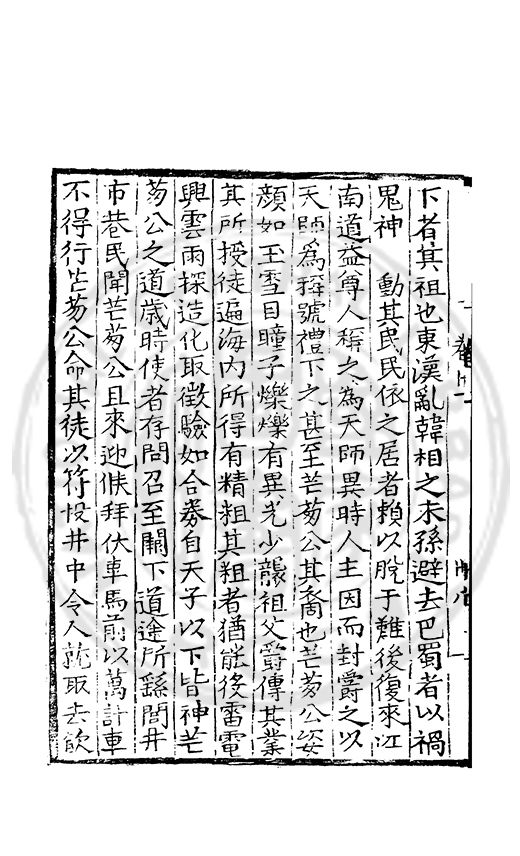 下者其祖也東漢亂韓相之末孫避去巴蜀者以禍
鬼神 動其民民依之居者賴以脫于難後復來江
南道益尊人稱之為天師異時人主因而封爵之以
天師為稱號禮下之甚至芒芴公其裔也芒芴公姿
顏如玉雪目瞳子爍爍有異光少襲祖父爵傳其業
其所授徒遍海内所得有精粗其粗者猶能役雷電
興雲雨探造化取徵驗如合券自天子以下皆神芒
芴公之道歲時使者存問召至闕下道途所繇閭井
市巷民聞芒芴公且來迎候拜伏車馬前以萬計車
不得行芒芴公命其徒以符投井中令人就取去飲